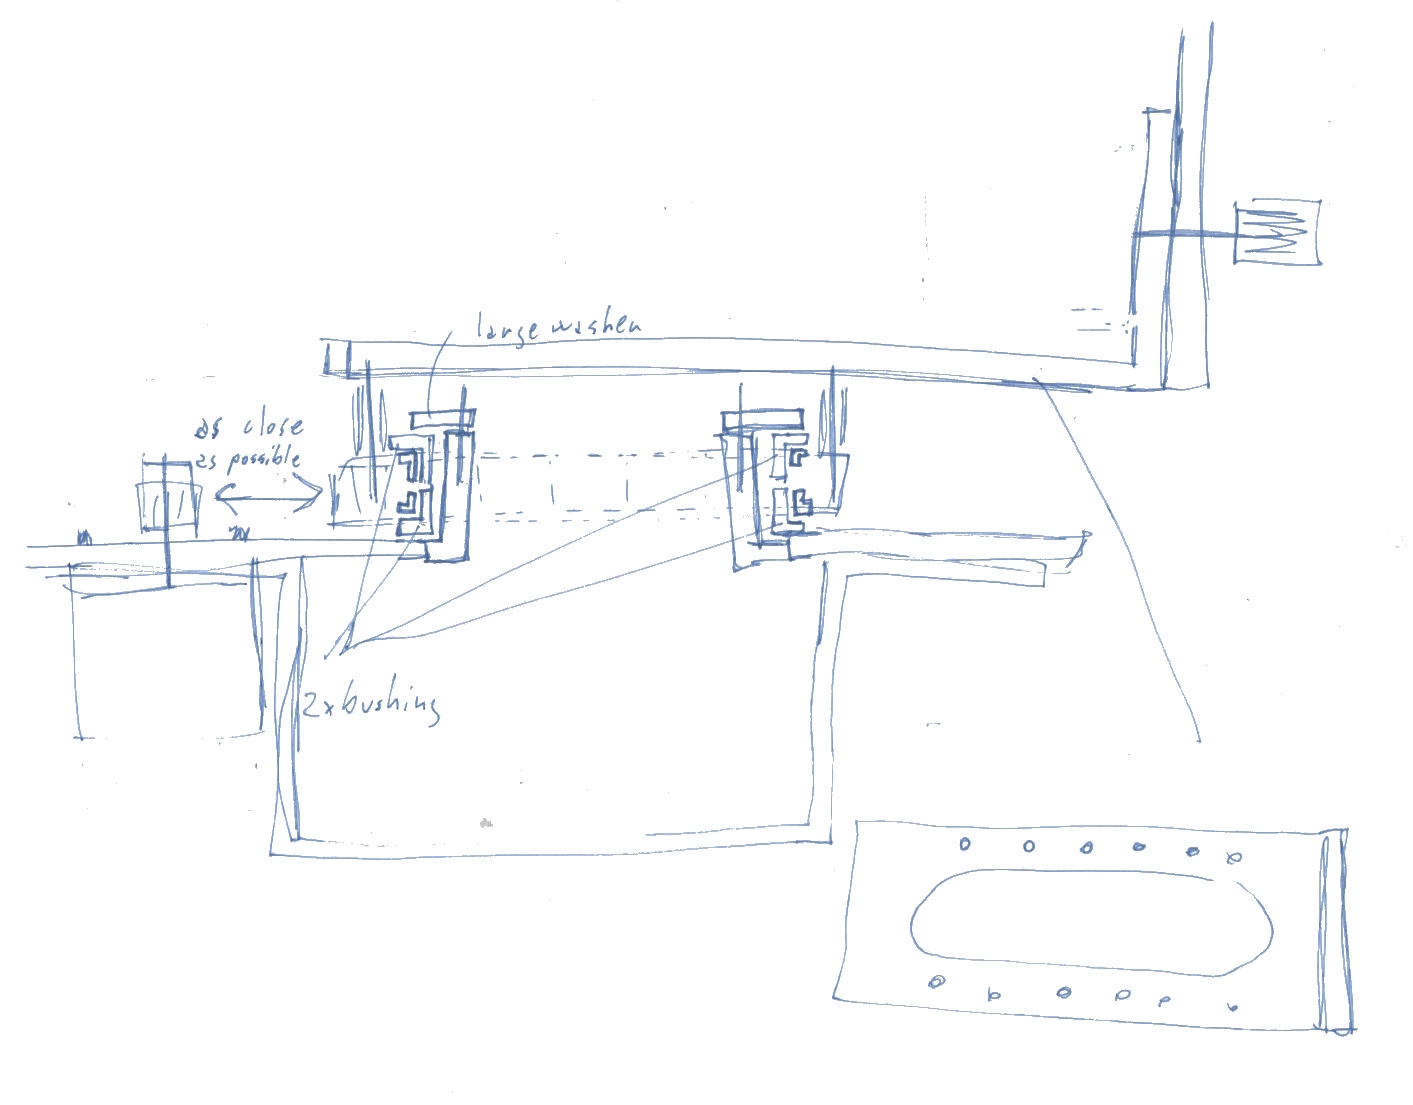 large washer
as close
as possible
2x bushing